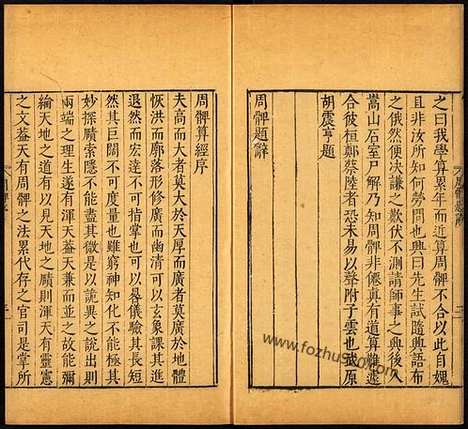 之曰我學算累年而近算周髀不合以此自媿
且非汝所知何勞問也興曰先生試隨興語布
之俄然便決謙之歎伏不測請師事之興後入
嵩山石室尸解乃知周髀非僊真有道算難遽
合彼桓鄭蔡陸者恐未易以聲附子雲也武原
胡震亨題
周髀題辭
周髀算經序
夫高而大者莫大於天厚而廣者莫廣於地體
恢洪而廓落形修廣而幽清可以玄象課其進
退然而宏遠不可指掌也可以晷儀驗其長短
然其巨闊不可度量也雖窮神知化不能極其
妙探賾索隱不能盡其微是以詭異之說出則
兩端之理生遂有渾天蓋天兼而並之故能彌
綸天地之道有以見天地之賾則渾天有靈憲
之文蓋天有周髀之法累代存之官司是掌所
www.fozhu920.com